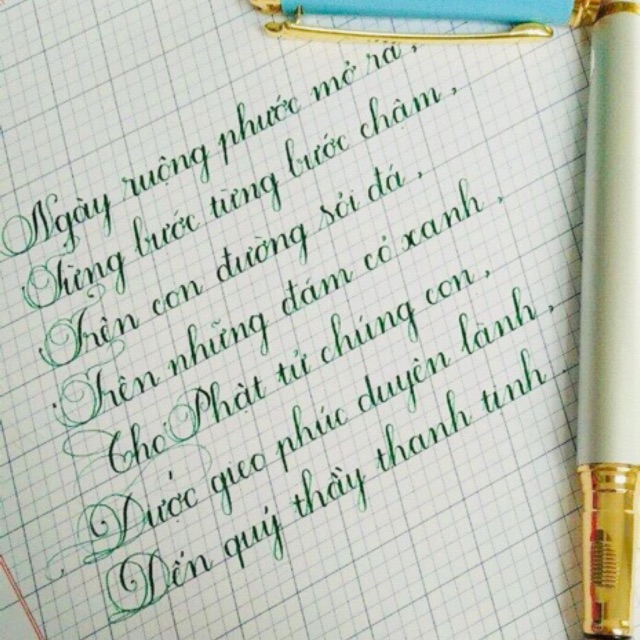 Ngày ruông phước mở ra,
Từng bước từng bước chậm,
Trên con đường sỏi đá,
Trên những đám cỏ xanh,
Cho Phật tử chúng con,
Được gieo phúc duyên lành,
Đến quý thầy thanh tịnh